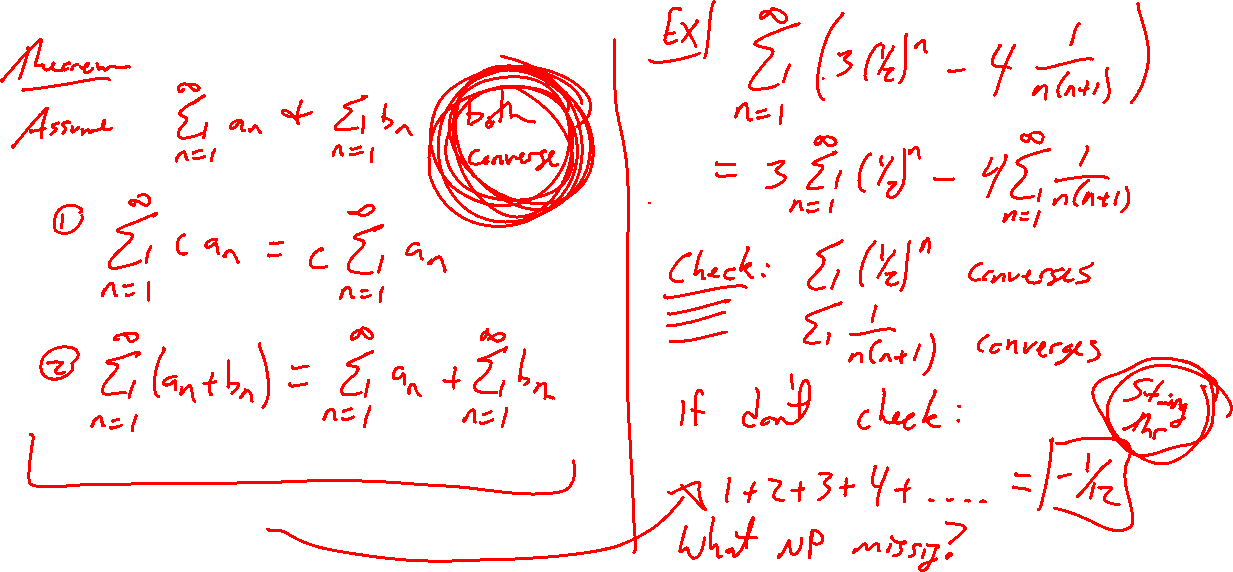 Theorem
Assume ∞∑n=1 an + ∑n=1 bn both converge
① ∞∑n=1 c an = c ∞∑n=1 an
② ∞∑n=1 (an+bn) = ∞∑n=1 an + ∞∑n=1 bn
EX ∞∑n=1 (3(1/2)^n - 4 1/n(n+1))
= 3 ∞∑n=1 (1/2)^n - 4 ∞∑n=1 1/n(n+1)
Check: ∑ (1/2)^n converges
∑ 1/n(n+1) converges
If don't check:
1+2+3+4+.... = -1/12
What NP missig?